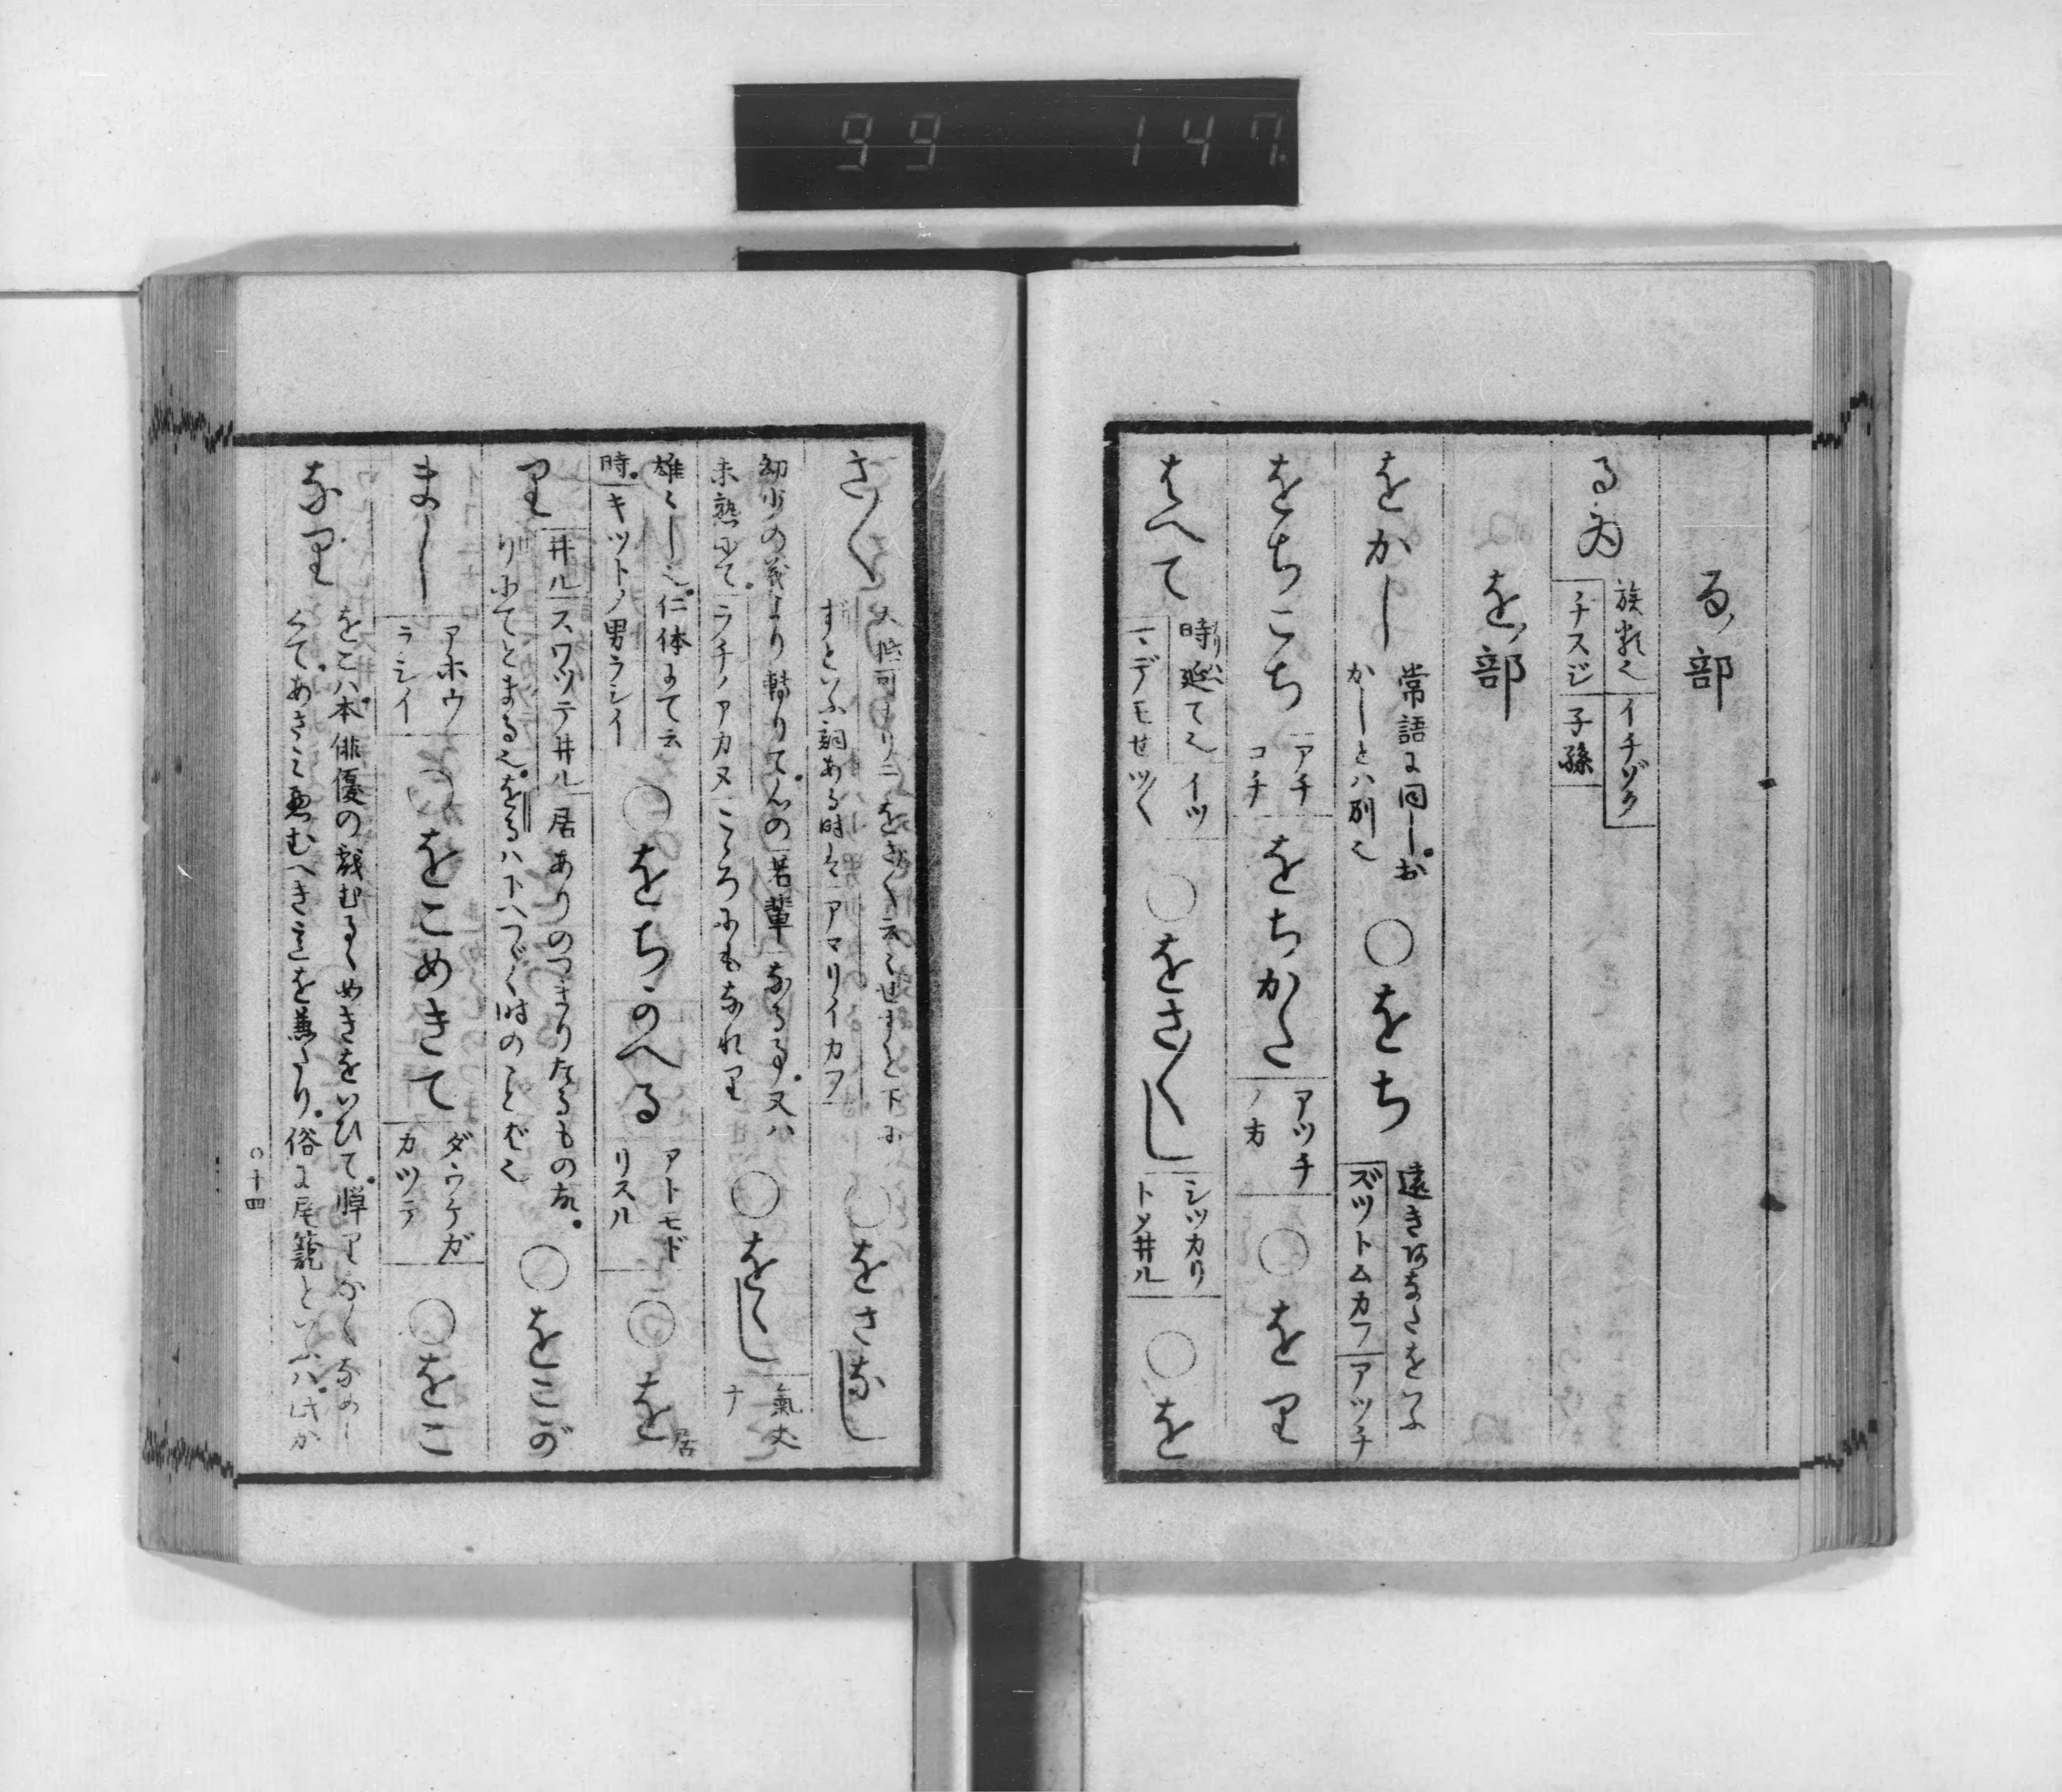 99 147
る部
るゐ 族類也 イチゾク
ミナスジ 子孫
を部
をかし 常語に同し。お
かしとハ別也 ○をち 遠きあなたをいふ
ズツトムカフ アツチ
をちこち アチ
コチ をちかた アツチ
ノ方 ○をり
はへて 時延て也 イツ
マデモせツく ○をさ〳〵し シツカリ
トメ井ル ○を
さ〳〵 をさ〳〵云々せずと下に
ずといふ詞ある時は アマリイカフ ○をさなし
幼少の義より轉りて。心の 若輩 なる事。又ハ
未熟にて。ラチノアカヌ こゝろにもなれり ○をゝし 氣丈
ナ
雄々し也。仁体にて云
時。キツトノ男ラシイ ○をちかへる アトモド
リスル ○を居
り 井ル スワツテ井ル 居 ありのつまりたるもの故。
りにてとまる也。をるハ下へつゞく時のことば也 ○をこが
まし アホウ
ラシイ ○をこめきて ダウケガ
カツテ ○をこ
なり をこハ。本 俳優の戯むるゝめきをいひて。憚りなくなめし
くて。あさみ悪むへき意を兼たり。俗に尾籠といふハ。此か
○十四